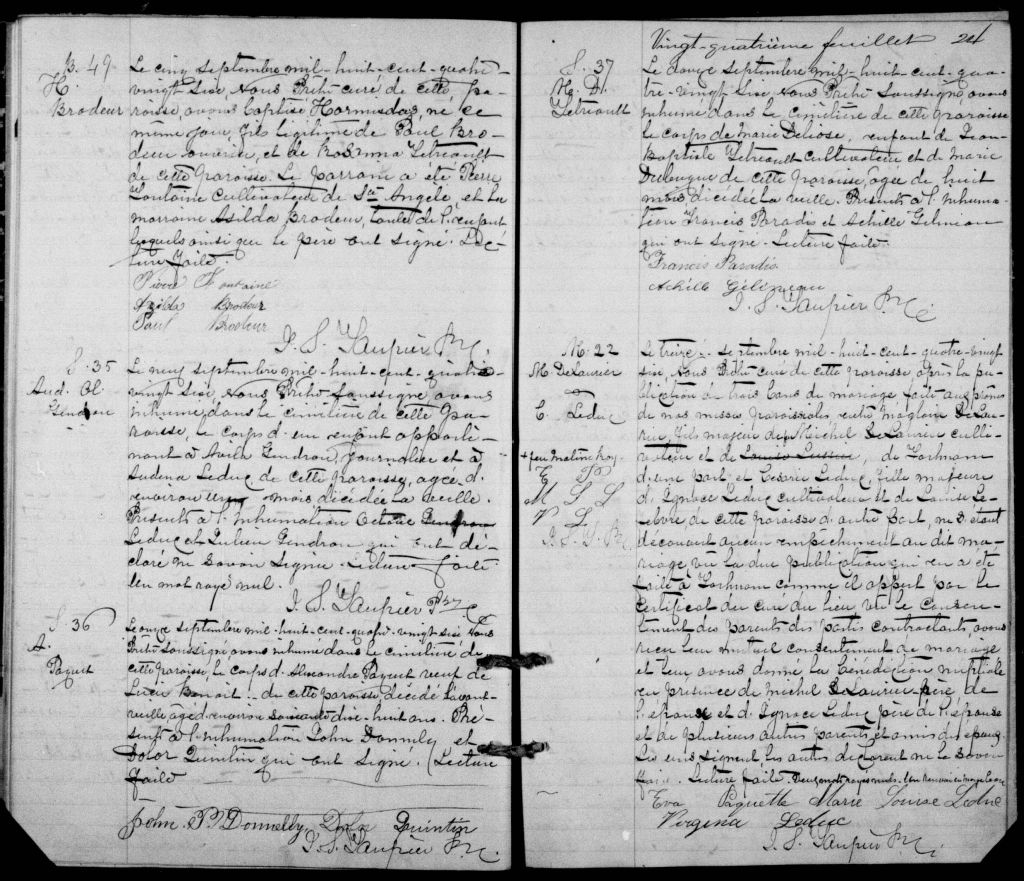 B. 49
H.
Brodeur
Le cinq septembre mil-huit-cent-quatre-
vingt-six Nous Prêtre curé de cette pa-
roisse avons baptisé Hormisdas, né le
même jour, fils légitime de Paul Bro-
deur ouvrier, et de Rosanna Tetreault
de cette paroisse. Le parrain a été Pierre
Fontaine cultivateur de Ste Angèle, et la
marraine Asilda Brodeur, tante de l'enfant
lesquels ainsi que le père ont signé. Lec-
ture faite.
Pierre Fontaine
Azilda Brodeur
Paul Brodeur
J. S. Taupier Ptre
S. 35
Aud. Ol.
Gendron
Le neuf septembre mil-huit-cent-quatre-
vingt-six, Nous Prêtre soussigné avons
inhumé dans le cimetière de cette pa-
roisse, le corps d'un enfant apparte-
nant à Avila Gendron, journalier et à
Audena Leduc de cette paroisse, agée d'
environ un mois décédé la veille.
Présents à l'inhumation Octave Gendron
Leduc et Julien Gendron qui ont dé-
claré ne savoir signer. Lecture faite
Un mot rayé nul.
J. S. Taupier Ptre
S. 36
A.
Paquet
Le onze septembre mil-huit-cent-quatre-vingt-six Nous
Prêtre soussigné avons inhumé dans le cimetière de
cette paroisse, le corps d'Alexandre Paquet veuf de
Lucie Benoit, de cette paroisse, décédé l'avant-
veille agé d'environ soixante dix-huit ans. Pré-
sents à l'inhumation John Donnelly et
Dolor Quintin qui ont signé. (Lecture
faite
John P. Donnelly Dolor Quintin
J. S. Taupier Ptre
Vingt-quatrième feuillet 24
S. 37
M. D.
Tetreault
Le douze septembre mil-huit-cent-qua-
tre-vingt-six Nous Prêtre soussigné avons
inhumé dans le cimetière de cette paroisse
le corps de Marie Deliose, enfant de Jean
Baptiste Tetreault cultivateur et de Marie
de cette paroisse, agée de huit
mois décédée la veille. Présents à l'inhuma-
tion Francis Paradis et Achille Gelineau
qui ont signé. Lecture faite
Francis Paradis
Achille Gélineau
J. S. Taupier Ptre
M. 22
M. DeLaurier
&
C. Leduc
Le treize septembre mil-huit-cent-quatre-vingt
six, Nous Prêtre curé de cette paroisse après la pu-
blication de trois bans de mariage faite aux prônes
de nos messes paroissiales entre Magloire DeLau-
rier, fils majeur de Michel DeLaurier culti-
+ feu Matine Roy.
vateur et de , de Farnham
d'une part, et Césarie Leduc, fille majeure
E P
M L L
V L
J. S. T. Ptre
d'Ignace Leduc cultivateur et de Louise Le-
febvre de cette paroisse d'autre part, ne s'étant
découvert aucun empêchement au dit ma-
riage vu la due publication qui en a été
faite à Farnham comme il appert par le
certificat du curé du lieu vu le consen-
tement des parents des parties contractants avons
reçu leur mutuel consentement de mariage
et leur avons donné la bénédiction nuptiale
en présence de Michel DeLaurier père de
l'époux et d'Ignace Leduc père de l'épouse
et de plusieurs autres parents et amis des époux
Les uns signent, les autres déclarent ne le savoir
faire. Lecture faite. Deux mots rayés nuls. Un renvoi en marge bon
Eva Paquette Marie Louise Leduc
Virgina Leduc
J. S. Taupier Ptre